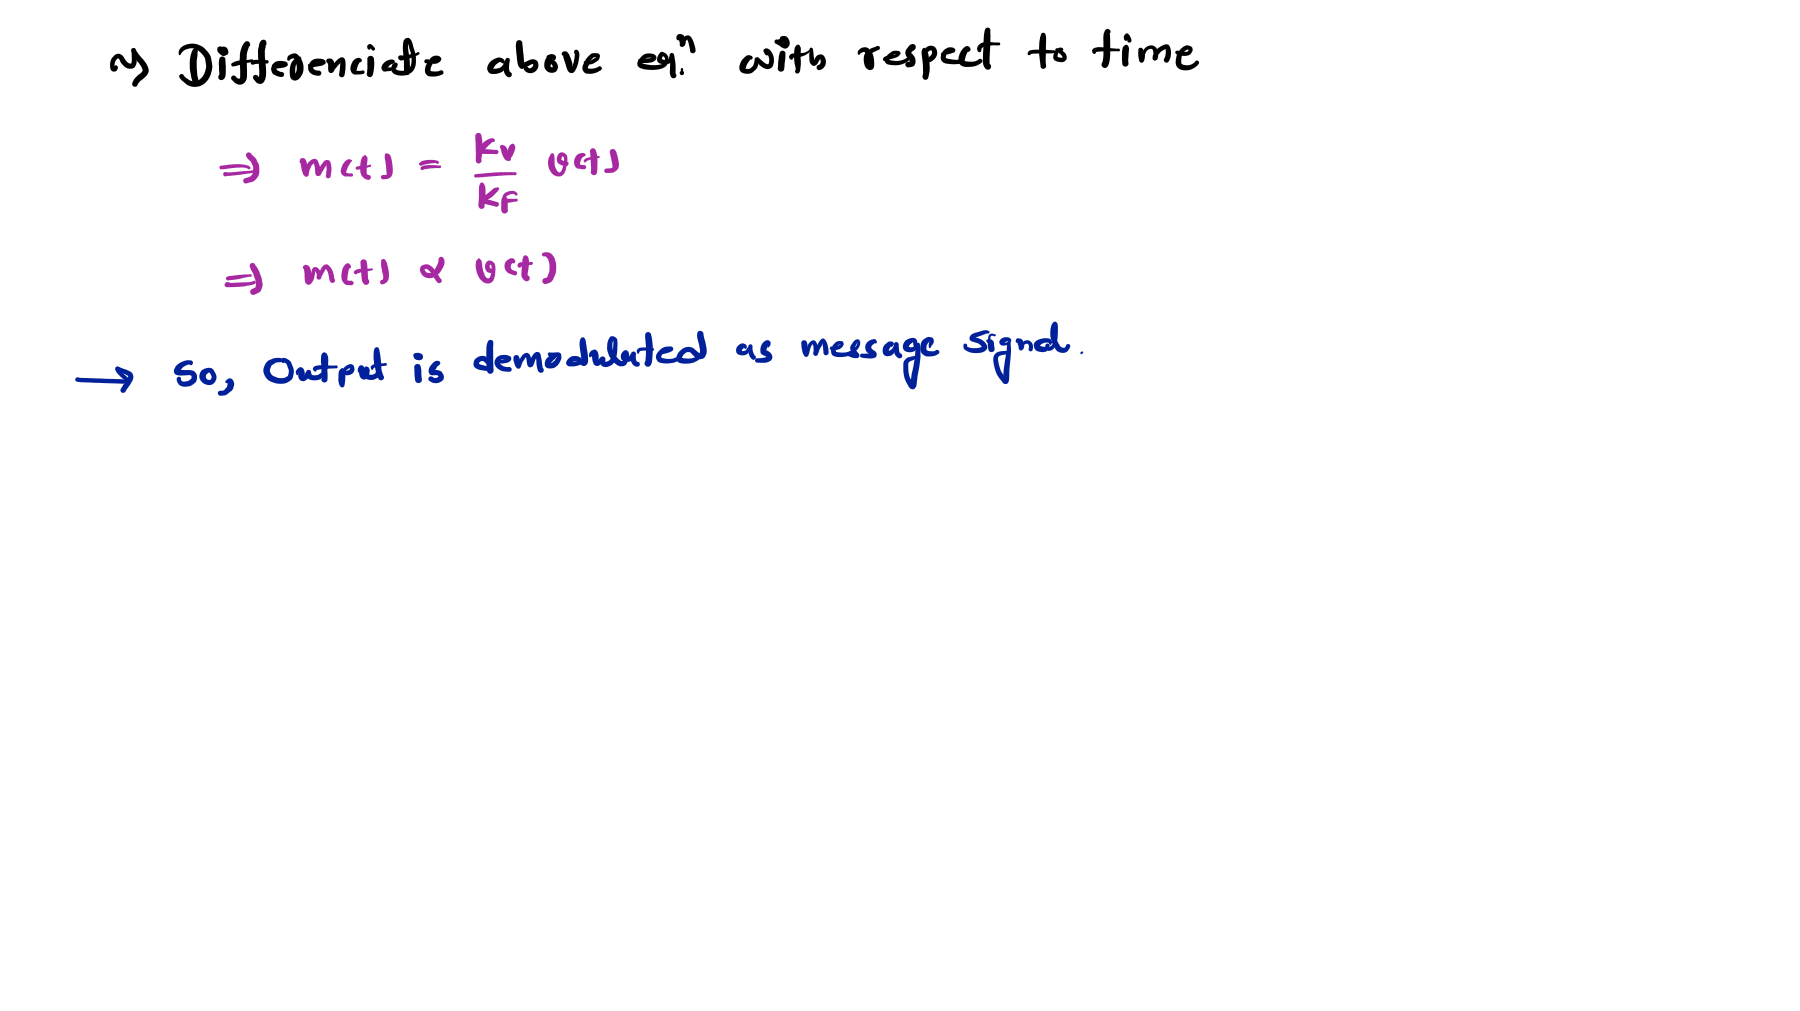 ~> Differenciate above eqn. with respect to time
⇒ m(t) = Kv/KF v(t)
⇒ m(t) ∝ v(t)
→ So, Output is demodulated as message signal.